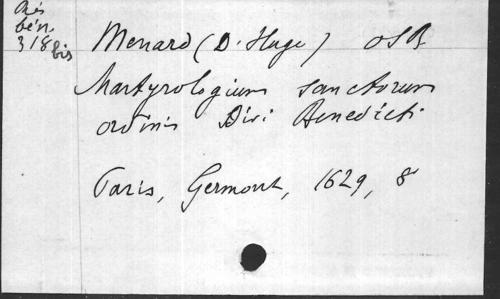 Rés
bén.
318 bis
Menard (D. Huge) OSB
Martyrologium sanctorum
ordinis Divi Benedicti
Paris, Germont, 1629, 8°